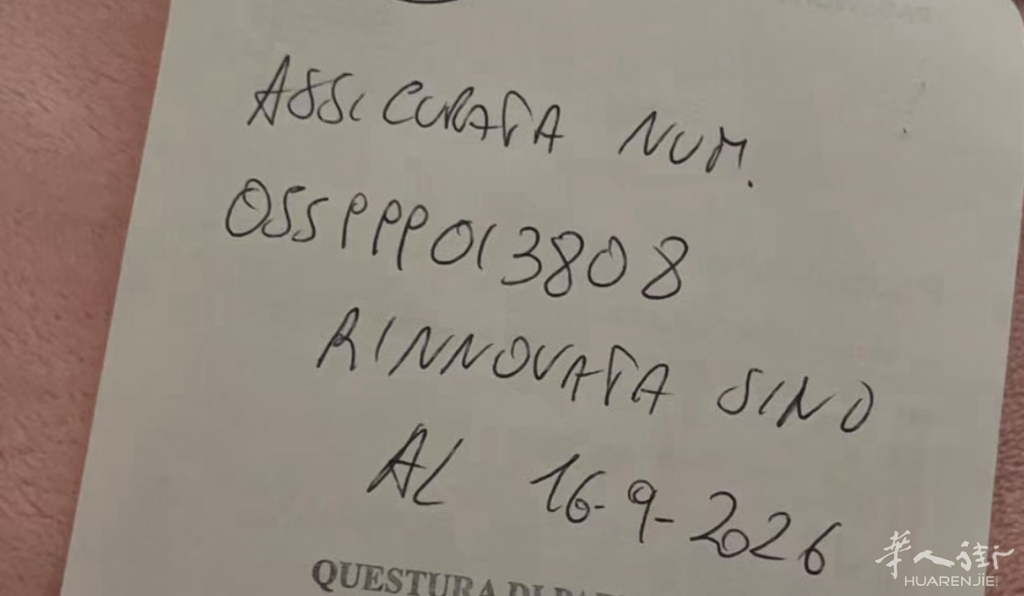 ASSICURATA NUM.
055PPP013808
RINNOVATA SINO
AL 16-9-2026
QUESTURA DI
華人街
HUARENJIE